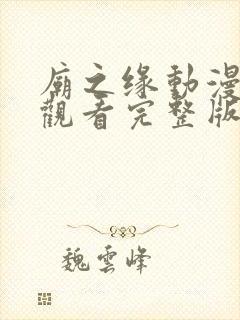 廟之缘動漫
觀看完整版
魏雲峰